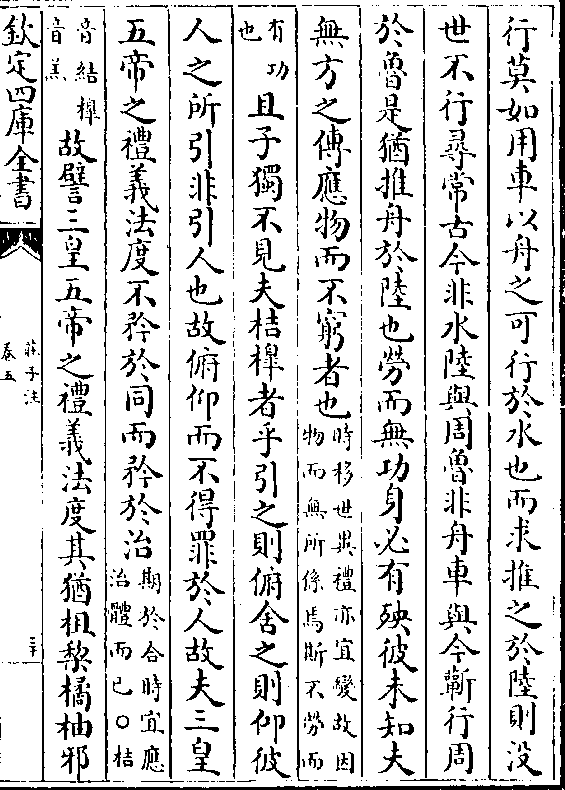 行莫如用車以舟之可行於水也而求推之於陸則没
世不行尋常古今非水陸與周魯非舟車與今蘄行周
於魯是猶推舟於陸也勞而無功身必有殃彼未知夫
無方之傳應物而不窮者也時移世異禮亦宜變故因
物而無所係焉斯不勞而
有功
也
且子獨不見夫桔槔者乎引之則俯舍之則仰彼
人之所引非引人也故俯仰而不得罪於人故夫三皇
五帝之禮義法度不矜於同而矜於治期於合時宜應
治體而已○桔
音結槔
音羔
故譬三皇五帝之禮義法度其猶柤棃橘柚邪
欽定四庫全書
莊子注
卷五